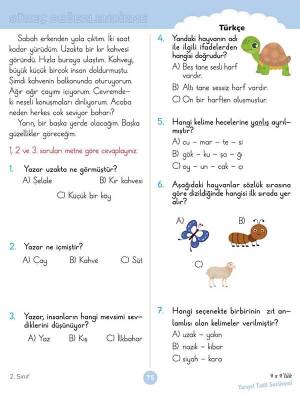 SÜREÇ DEĞERLENDİRME
Sabah erkenden yola çıktım. İki saat
kadar yürüdüm. Uzakta bir kır kahvesi
göründü. Hızla buraya ulaştım. Kahveyi,
büyük küçük bircok insan doldurmuştu.
Şimdi kahvenin balkonunda oturuyorum.
Ağır ağır çayımı içiyorum. Çevremde-
ki neşeli konuşmaları dinliyorum. Acaba
neden herkes çok seviyor baharı?
Yarın, bir başka yerde olacağım. Başka
güzellikler göreceğim.
1, 2 ve 3. soruları metne göre cevaplayınız.
1. Yazar uzakta ne görmüştür?
A) Şelale B) Kır kahvesi
C) Küçük bir köy
2. Yazar ne içmiştir?
A) Çay B) Kahve C) Süt
3. Yazar, insanların hangi mevsimi sev-
diklerini düşünüyor?
A) Yaz B) Kış C) İlkbahar
Türkçe
4. Yandaki hayvanın adı
ile ilgili ifadelerden
hangisi doğrudur?
A) Beş tane sesli harf
vardır.
B) Altı tane sessiz harf vardır.
C) On bir harften oluşmuştur.
5. Hangi kelime hecelerine yanlış ayrıl-
mıştır?
A) cu – mar – te – si
B) gök – ku – şa – ğı
C) oy – un – cak – cı
6. Aşağıdaki hayvanlar sözlük sırasına
göre dizildiğinde hangisi ilk sırada yer
alır?
A)
B)
C)
7. Hangi seçenekte birbirinin zıt an-
lamlısı olan kelimeler verilmiştir?
A) uzak – yakın
B) nazik – kibar
C) siyah – kara
2. Sınıf
75
Yarıyıl Tatil Serüveni